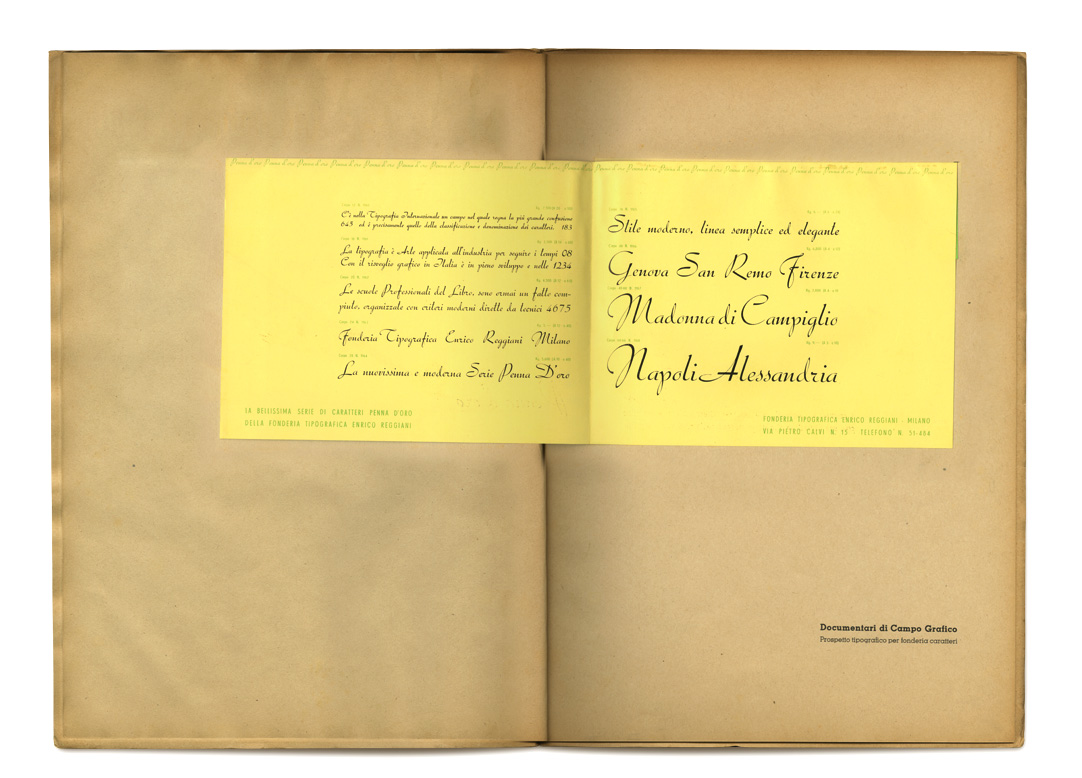 Penna d'oro Penna d'oro Penna d'oro Penna d'oro Penna d'oro Penna d'oro Penna d'oro Penna d'oro Penna d'oro Penna d'oro Penna d'oro
C'è nella Tipografia Internazionale un campo nel quale regna la più grande confusione
645 ed è precisamente quello della classificazione e denominazione dei caratteri. 183
La tipografia è Arte applicata all'industria per seguire i tempi 08
Con il risveglio grafico in Italia è in pieno sviluppo e nelle 1234
Le scuole Professionali del Libro, sono ormai un fatto com-
piuto, organizzate con criteri moderni dirette da tecnici 4675
Fonderia Tipografica Enrico Reggiani Milano
La nuovissima e moderna Serie Penna D'oro
LA BELLISSIMA SERIE DI CARATTERI PENNA D'ORO
DELLA FONDERIA TIPOGRAFICA ENRICO REGGIANI
Penna d'oro Penna d'oro Penna d'oro Penna d'oro Penna d'oro Penna d'oro Penna d'oro Penna d'oro Penna d'oro Penna d'oro Penna d'oro
Stile moderno, linea semplice ed elegante
Genova San Remo Firenze
Madonna di Campiglio
Napoli Alessandria
FONDERIA TIPOGRAFICA ENRICO REGGIANI - MILANO
VIA PIETRO CALVI N. 15 TELEFONO N. 51-484
Documentari di Campo Grafico
Prospetto tipografico per fonderia caratteri